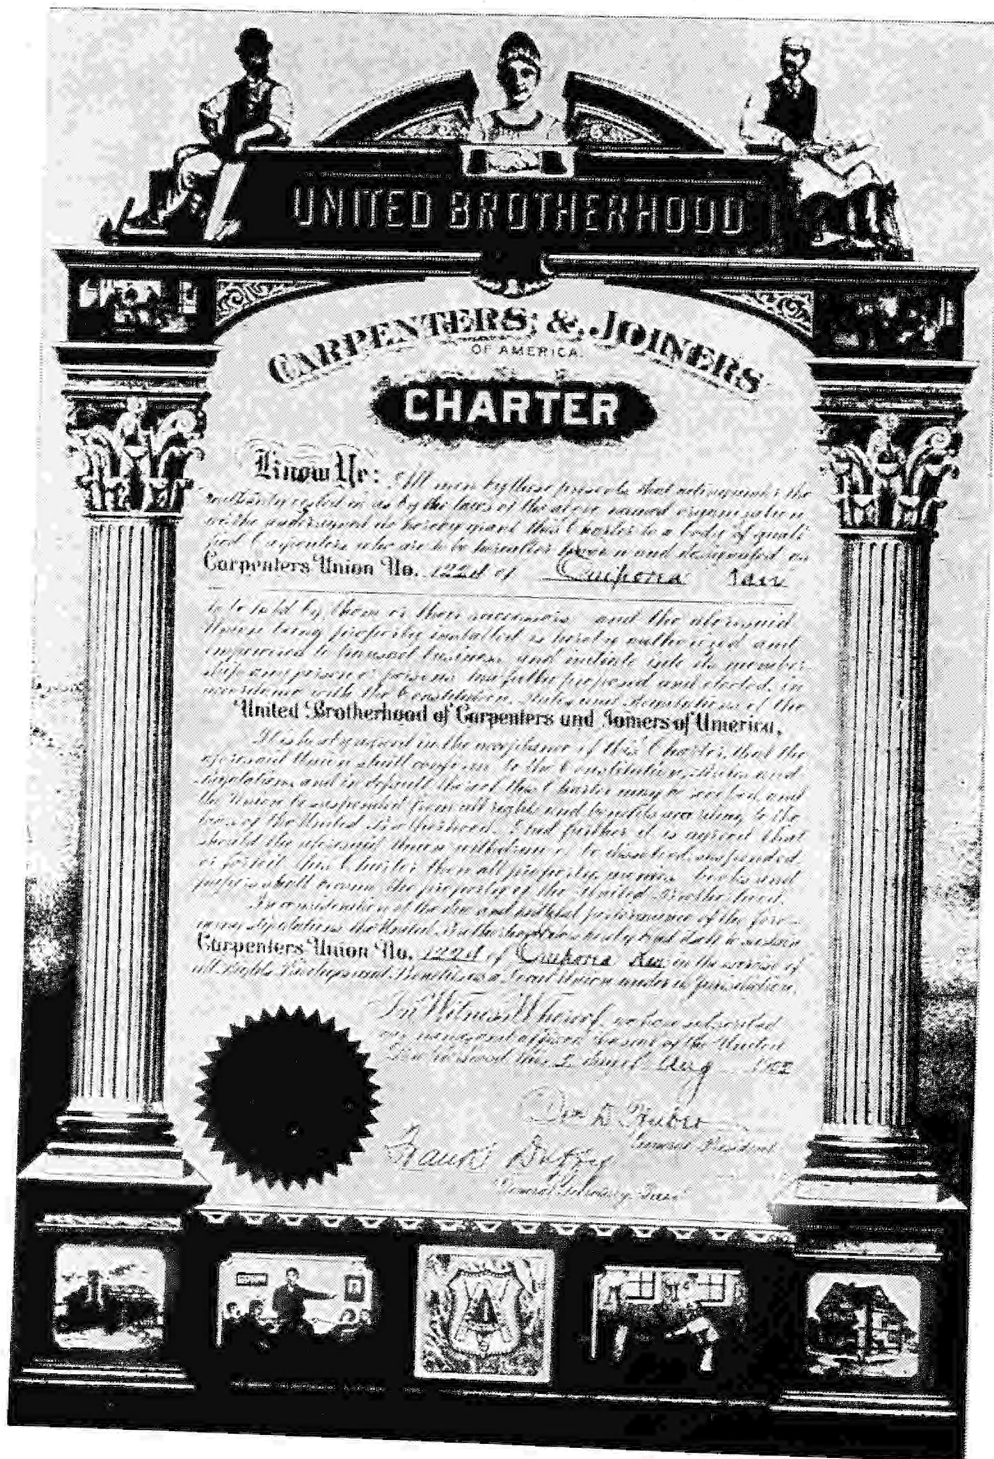 UNITED BROTHERHOOD
CARPENTERS, & JOINERS
OF AMERICA.
CHARTER
Know Ye: All men by these presents, that acting under the
authority vested in us by the laws of the above named organization
we the undersigned do hereby grant this Charter to a body of quali
fied Carpenters who are to be hereafter known and designated as
Carpenters Union No. 1224 of Emporia Kan
to be held by them or their successors and the aforesaid
Union being properly installed is hereby authorized and
empowered to transact business, and initiate into its member
ship any person or persons lawfully proposed and elected, in
accordance with the Constitution, Rules and Regulations of the
United Brotherhood of Carpenters and Joiners of America.
It is hereby agreed in the acceptance of this Charter, that the
aforesaid Union shall conform to the Constitution, Rules and
Regulations and in default thereof this Charter may be revoked, and
the Union be suspended from all rights and benefits according to the
laws of the United Brotherhood. And further it is agreed that
should the aforesaid Union withdraw or be dissolved, suspended,
or forfeit this Charter then all property, moneys, books and
papers shall become the property of the United Brotherhood.
In consideration of the due and faithful performance of the fore-
going stipulations the United Brotherhood does hereby bind itself to sustain
Carpenters Union No. 1224 of Emporia Kan in the exercise of
all Rights Privileges and Benefits as a Local Union under its jurisdiction.
In Witness Whereof, we have subscribed
our names and affixed the seal of the United
Brotherhood this 2 day of Aug 1902
Wm D. Huber
General President
Frank Duffy
General Secretary-Treas.